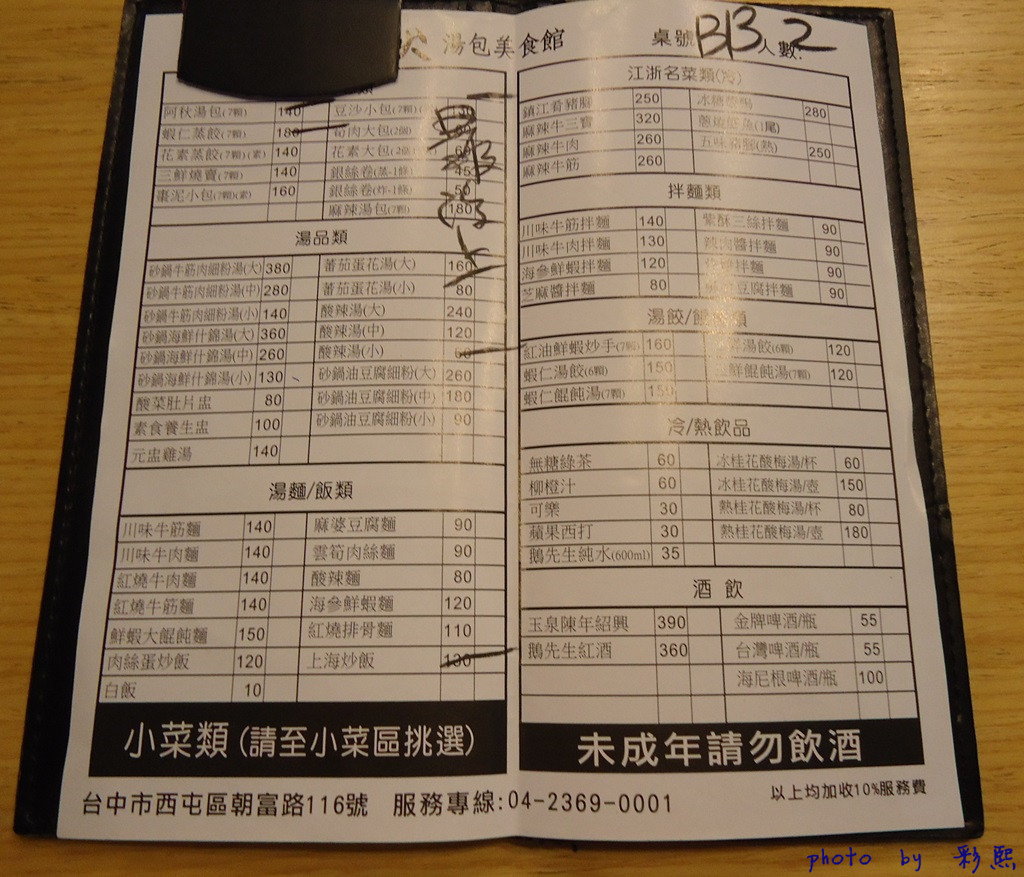 湯包美食館
桌號 B13 人數: 2
類
阿秋湯包(7顆) 140 豆沙小包(7顆)
蝦仁蒸餃(7顆) 180 筍肉大包(2個)
花素蒸餃(7顆)(素) 140 花素大包(2個
三鮮燒賣(7顆) 140 銀絲卷(蒸-1條) 45
棗泥小包(7顆)(素) 160 銀絲卷(炸-1條) 50
麻辣湯包(7顆) 180
湯品類
砂鍋牛筋肉細粉湯(大) 380 蕃茄蛋花湯(大) 160
砂鍋牛筋肉細粉湯(中) 280 蕃茄蛋花湯(小) 80
砂鍋牛筋肉細粉湯(小) 140 酸辣湯(大) 240
砂鍋海鮮什錦湯(大) 360 酸辣湯(中) 120
砂鍋海鮮什錦湯(中) 260 酸辣湯(小) 60
砂鍋海鮮什錦湯(小) 130 砂鍋油豆腐細粉(大) 260
酸菜肚片盅 80 砂鍋油豆腐細粉(中) 180
素食養生盅 100 砂鍋油豆腐細粉(小) 90
元盅雞湯 140
湯麵/飯類
川味牛筋麵 140 麻婆豆腐麵 90
川味牛肉麵 140 雲筍肉絲麵 90
紅燒牛肉麵 140 酸辣麵 80
紅燒牛筋麵 140 海參鮮蝦麵 120
鮮蝦大餛飩麵 150 紅燒排骨麵 110
肉絲蛋炒飯 120 上海炒飯 130
白飯 10
小菜類(請至小菜區挑選)
江浙名菜類(冷)
鎮江肴豬腳 250 280
麻辣牛三寶 320 (1尾)
麻辣牛肉 260 五味豬腳(熱) 250
麻辣牛筋 260
拌麵類
川味牛筋拌麵 140 紫酥三絲拌麵 90
川味牛肉拌麵 130 辣肉醬拌麵 90
海參鮮蝦拌麵 120 拌麵 90
芝麻醬拌麵 80 豆腐拌麵 90
湯餃/餛飩類
紅油鮮蝦炒手(7顆) 160 湯餃(6顆) 120
蝦仁湯餃(6顆) 150 鮮餛飩湯(7顆) 120
蝦仁餛飩湯(7顆) 150
冷/熱飲品
無糖綠茶 60 冰桂花酸梅湯/杯 60
柳橙汁 60 冰桂花酸梅湯/壺 150
可樂 30 熱桂花酸梅湯/杯 80
蘋果西打 30 熱桂花酸梅湯/壺 180
鵝先生純水(600ml) 35
酒 飲
玉泉陳年紹興 390 金牌啤酒/瓶 55
鵝先生紅酒 360 台灣啤酒/瓶 55
海尼根啤酒/瓶 100
未成年請勿飲酒
台中市西屯區朝富路116號 服務專線:04-2369-0001
以上均加收10%服務費
photo by 彩熙